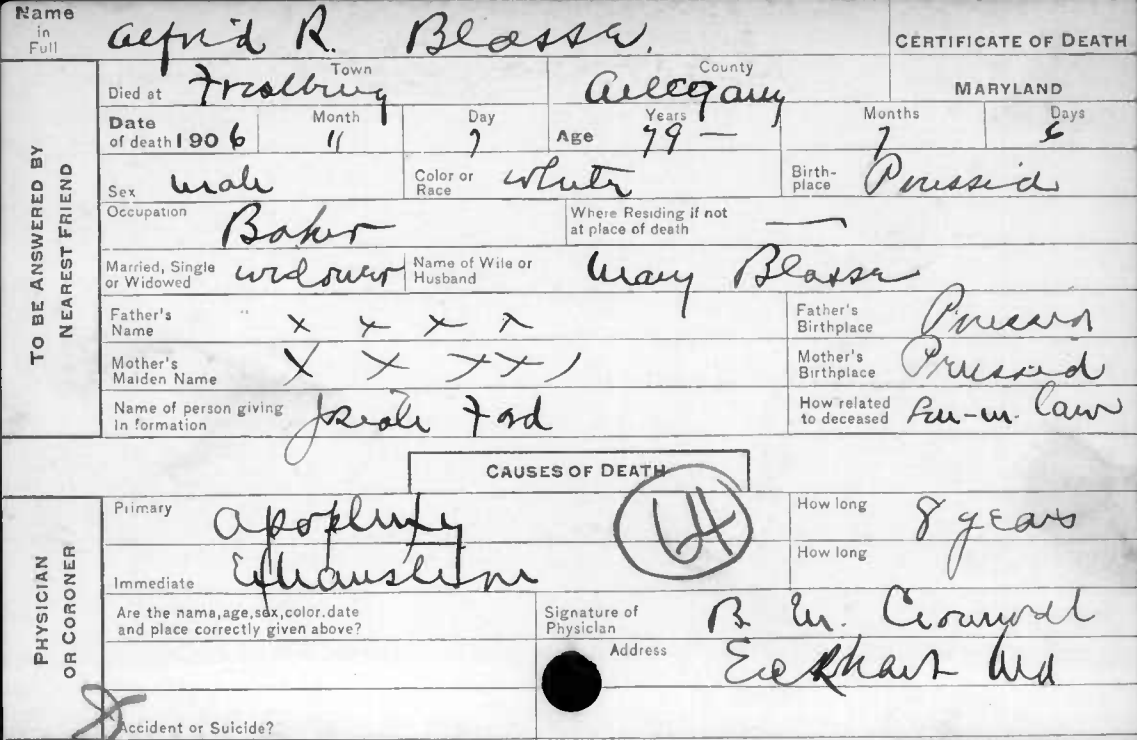 Name in Full Alfrid R. Blasse.
CERTIFICATE OF DEATH
TO BE ANSWERED BY NEAREST FRIEND
Died at Frostburg Town Allegany County MARYLAND
Date of death 1906 Month 11 Day 7 Age Years 79 — Months 7 Days
Sex male Color or Race white Birth-place Prussia
Occupation Baker Where Residing if not at place of death —
Married, Single or Widowed widower Name of Wife or Husband Mary Blasse
Father's Name x x x x Father's Birthplace Prussia
Mother's Maiden Name x x x x Mother's Birthplace Prussia
Name of person giving In formation Josiah Ford How related to deceased Son-in-law
CAUSES OF DEATH
PHYSICIAN OR CORONER
Primary Apoplexy 64 How long 8 years
Immediate Exhaustion How long
Are the name, age, sex, color. date and place correctly given above?
Signature of Physician B. M. Cromwell
Address Eckhart Md
Accident or Suicide?